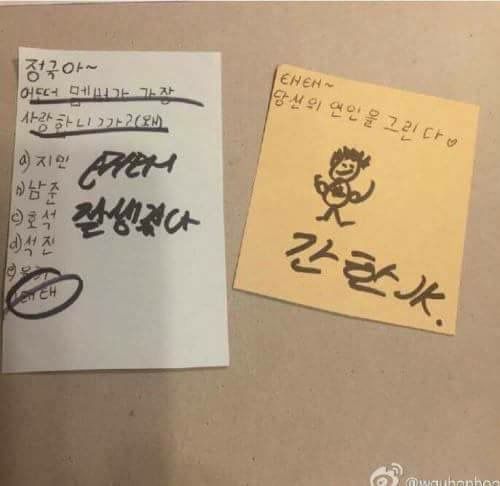 정국아~
어떠 멤버가 가장
사랑하니까?(왜)
a) 지민
b) 남준
c) 호석
d) 석진
e)
태태
잘생겼다
태태~
당신의 연인을 그린다♡
간탄JK.
@wauhanhao